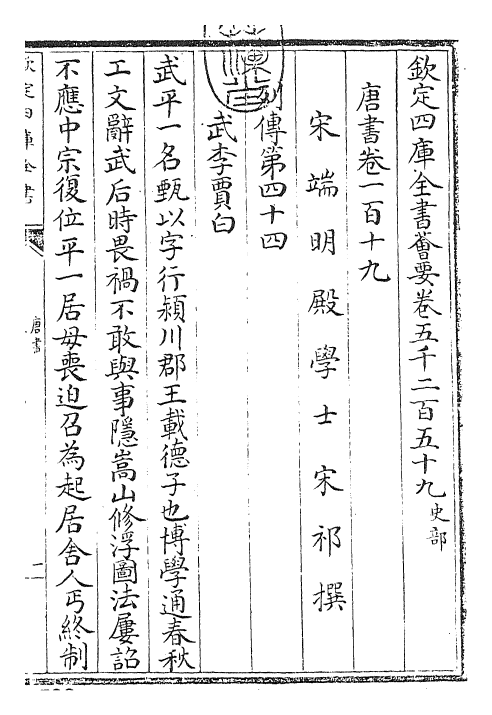 欽定四庫全書薈要卷五千二百五十九史部
唐書卷一百十九
宋端明殿學士宋祁撰
列傳第四十四
武李賈白
武平一名甄以字行潁川郡王載德子也博學通春秋
工文辭武后時畏禍不敢與事隱嵩山修浮圖法屢詔
不應中宗復位平一居母喪迫召為起居舍人丐終制
欽定四庫全書
唐書